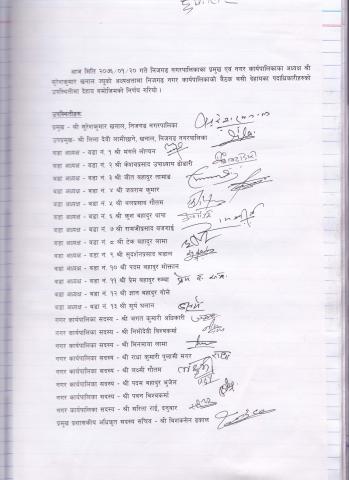 आज मिति २०७५/०१/२० गते निजगढ नगरपालिकाका प्रमुख एवं नगर कार्यपालिकाका अध्यक्ष श्री
सुरेशकुमार खनाल ज्यूको अध्यक्षतामा निजगढ नगर कार्यपालिकाको बैठक बसी देहायका पदाधिकारीहरुको
उपस्थितीमा देहाय बमोजिमको निर्णय गरियो ।
उपस्थितीहरु
प्रमुख - श्री सुरेशकुमार खनाल, निजगढ नगरपालिका
उप-प्रमुख - श्री लिला देवी लामीछाने, निजगढ नगरपालिका
वडा अध्यक्ष - वडा नं. १ श्री मंगले लोप्चन
वडा अध्यक्ष - वडा नं. २ श्री केशवप्रसाद उपाध्याय ढोडारी
वडा अध्यक्ष - वडा नं. ३ श्री जीत बहादुर तामाङ
वडा अध्यक्ष - वडा नं. ४ श्री जयराम कुमार
वडा अध्यक्ष - वडा नं. ५ श्री बलप्रसाद गौतम
वडा अध्यक्ष - वडा नं. ६ श्री कृत बहादुर थापा
वडा अध्यक्ष - वडा नं. ७ श्री रामजीप्रसाद बजगाई
वडा अध्यक्ष - वडा नं. ८ श्री टेक बहादुर लामा
वडा अध्यक्ष - वडा नं. ९ श्री सुदर्शनप्रसाद चलान
वडा अध्यक्ष - वडा नं. १० श्री पदम बहादुर मोक्तान
वडा अध्यक्ष - वडा नं. ११ श्री प्रेम बहादुर रुम्बा
वडा अध्यक्ष - वडा नं. १२ श्री ज्ञान बहादुर योञ्जे
वडा अध्यक्ष - वडा नं. १३ श्री सूर्य घलान
नगर कार्यपालिका सदस्य - श्री भगत कुमारी अधिकारी
नगर कार्यपालिका सदस्य - श्री निर्मादेवी विश्वकर्मा
नगर कार्यपालिका सदस्य - श्री बिनमाया लामा
नगर कार्यपालिका सदस्य - श्री राधा कुमारी पुलामी मगर
नगर कार्यपालिका सदस्य - श्री लक्ष्मी गौतम
नगर कार्यपालिका सदस्य - श्री पदम बहादुर भुजेल
नगर कार्यपालिका सदस्य - श्री पवन विश्वकर्मा
नगर कार्यपालिका सदस्य - श्री सरिता राई, दनुवार
प्रमुख प्रशासकीय अधिकृत सदस्य सचिव - श्री बिशकसेन ढकाल